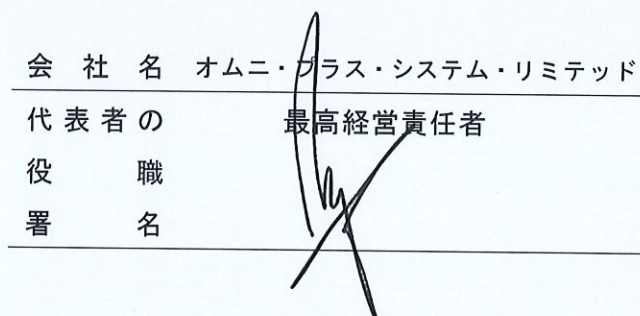 会社名 オムニ・プラス・システム・リミテッド
代表者の 最高経営責任者
役職
署名